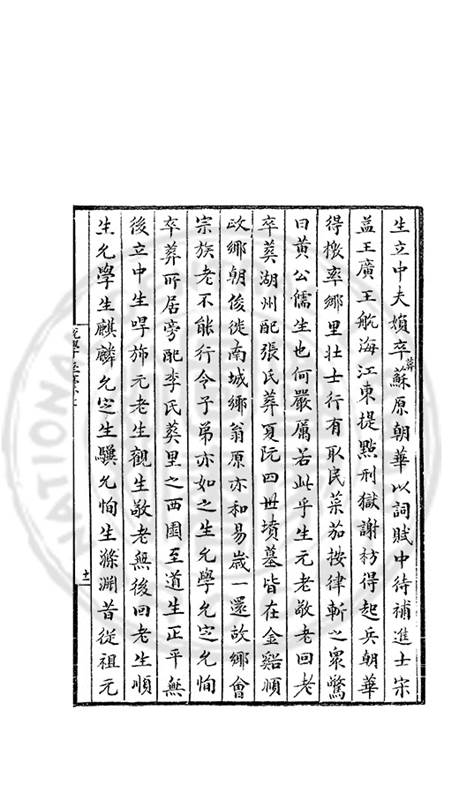 生立中夫嬪卒葬蘇原朝華以詞賦中待補進士宋
益王廣王航海江東提點刑獄謝枋得起兵朝華
得檄率鄉里壯士行有取民菜茄按律斬之眾驚
曰黃公儒生也何嚴厲若此乎生元老敬老回老
卒葬湖州配張氏葬夏阮四世墳墓皆在金谿順
政鄉朝俊徙南城鄉翁原亦和易歲一還故鄉會
宗族老不能行令子弟亦如之生允學允定允恂
卒葬所居旁配李氏葬里之西園至道生正平無
後立中生㖔斾元老生觀生敬老無後回老生順
生允學生麒麟允定生驥允恂生滌淵昔從祖元
十二
NATIONAL